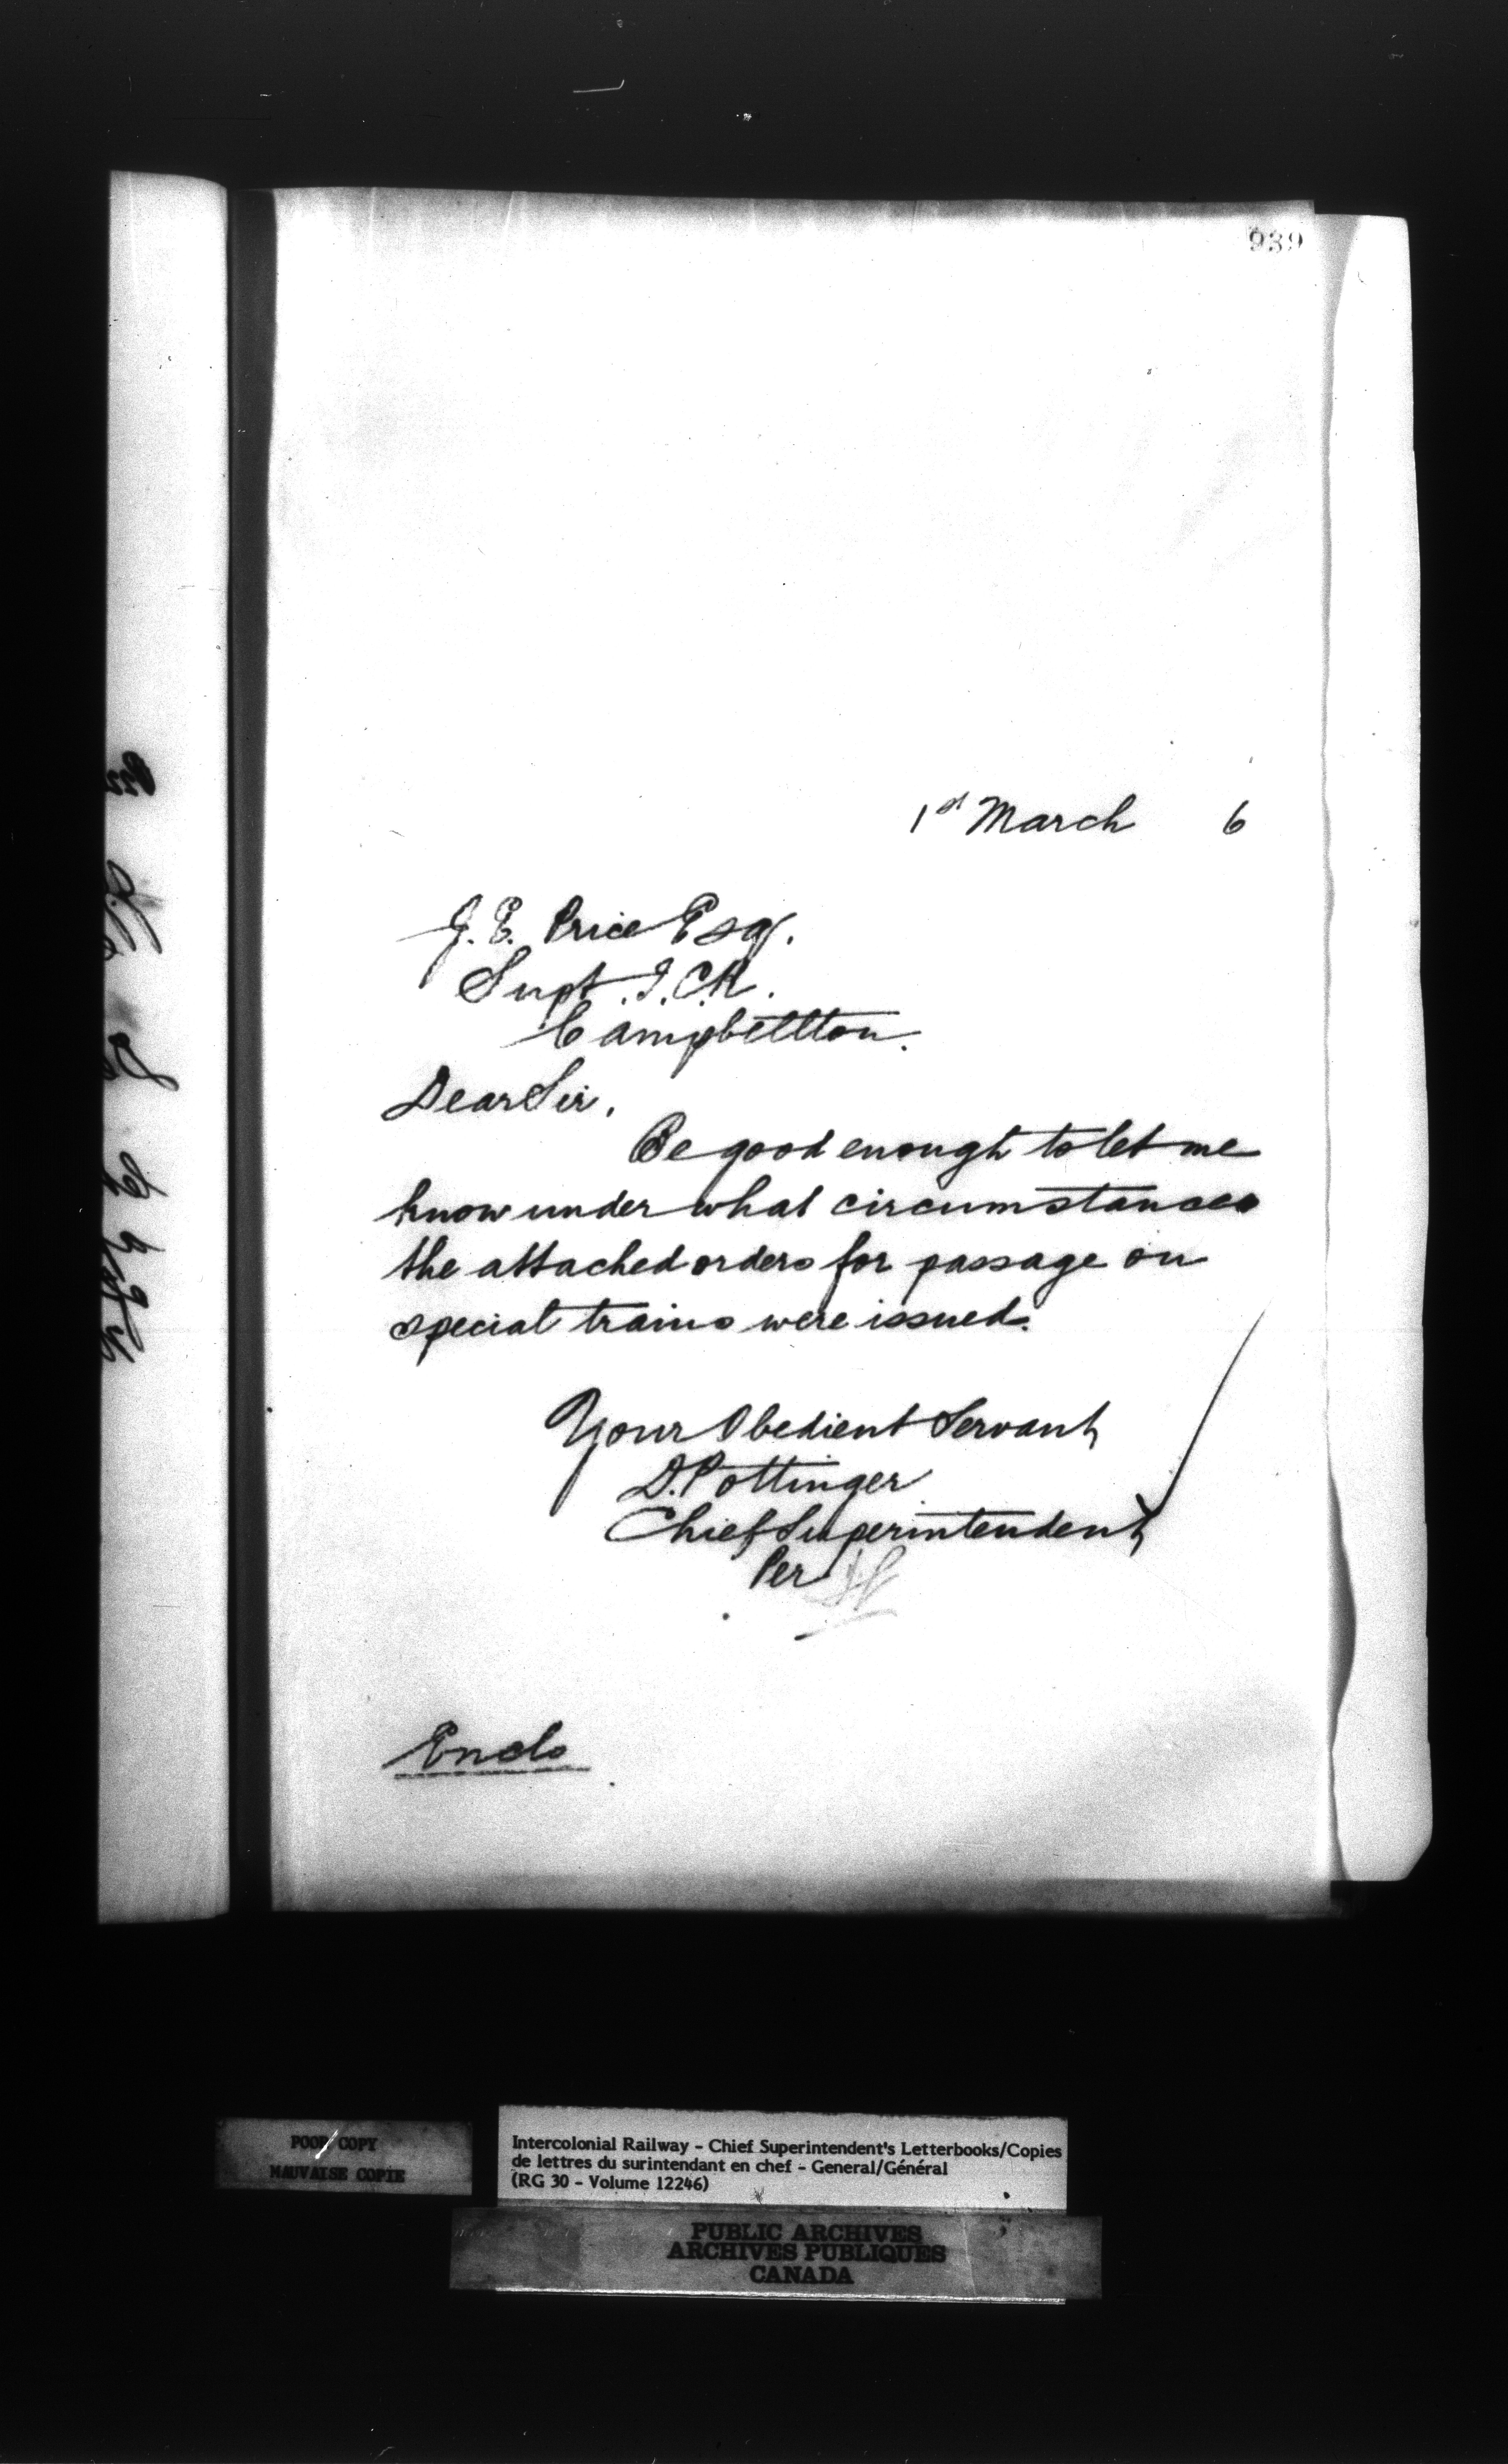 939
1st March 6
J. E. Price Esq.
Supt. I.C.R.
Campbellton.
Dear Sir,
Be good enough to let me
know under what circumstances
the attached orders for passage on
special trains were issued.
Your Obedient Servant
D. Pottinger
Chief Superintendent
Per
Enclo
POOR COPY
MAUVAISE COPIE
Intercolonial Railway - Chief Superintendent's Letterbooks/Copies
de lettres du surintendant en chef - General/Général
(RG 30 - Volume 12246)
PUBLIC ARCHIVES
ARCHIVES PUBLIQUES
CANADA